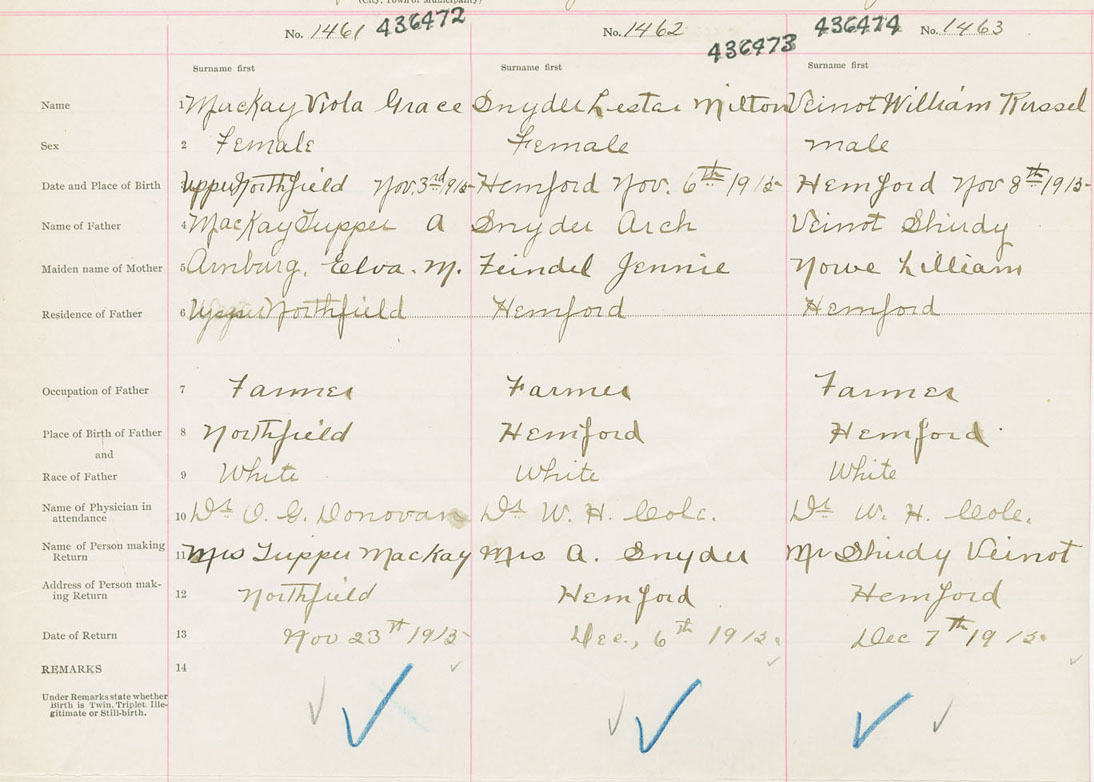 (City, Town or Municipality)
No. 1461 436472 No. 1462 436473 436474 No. 1463
Surname first Surname first Surname first
Name 1 MacKay Viola Grace Snyder Lester Milton Veinot William Russel
Sex 2 Female Female male
Date and Place of Birth Upper Northfield Nov. 3rd 1915 Hemford Nov. 6th 1915 Hemford Nov 8th 1915
Name of Father 4 MacKay Tupper A Snyder Arch Veinot Shirdy
Maiden name of Mother 5 Arnburg, Elva. M. Feindel Jennie Nowe Lilliam
Residence of Father 6 Upper Northfield Hemford Hemford
Occupation of Father 7 Farmer Farmer Farmer
Place of Birth of Father 8 Northfield Hemford Hemford
and
Race of Father 9 White White White
Name of Physician in
attendance 10 Dr. O. G. Donovan Dr. W. H. Cole. Dr. W. H. Cole.
Name of Person making
Return 11 Mrs Tupper MacKay Mrs A. Snyder Mr Shirdy Veinot
Address of Person mak-
ing Return 12 Northfield Hemford Hemford
Date of Return 13 Nov 23rd 1915 Dec., 6th 1915. Dec 7th 1915.
REMARKS 14
Under Remarks state whether
Birth is Twin, Triplet, Ille-
gitimate or Still-birth.